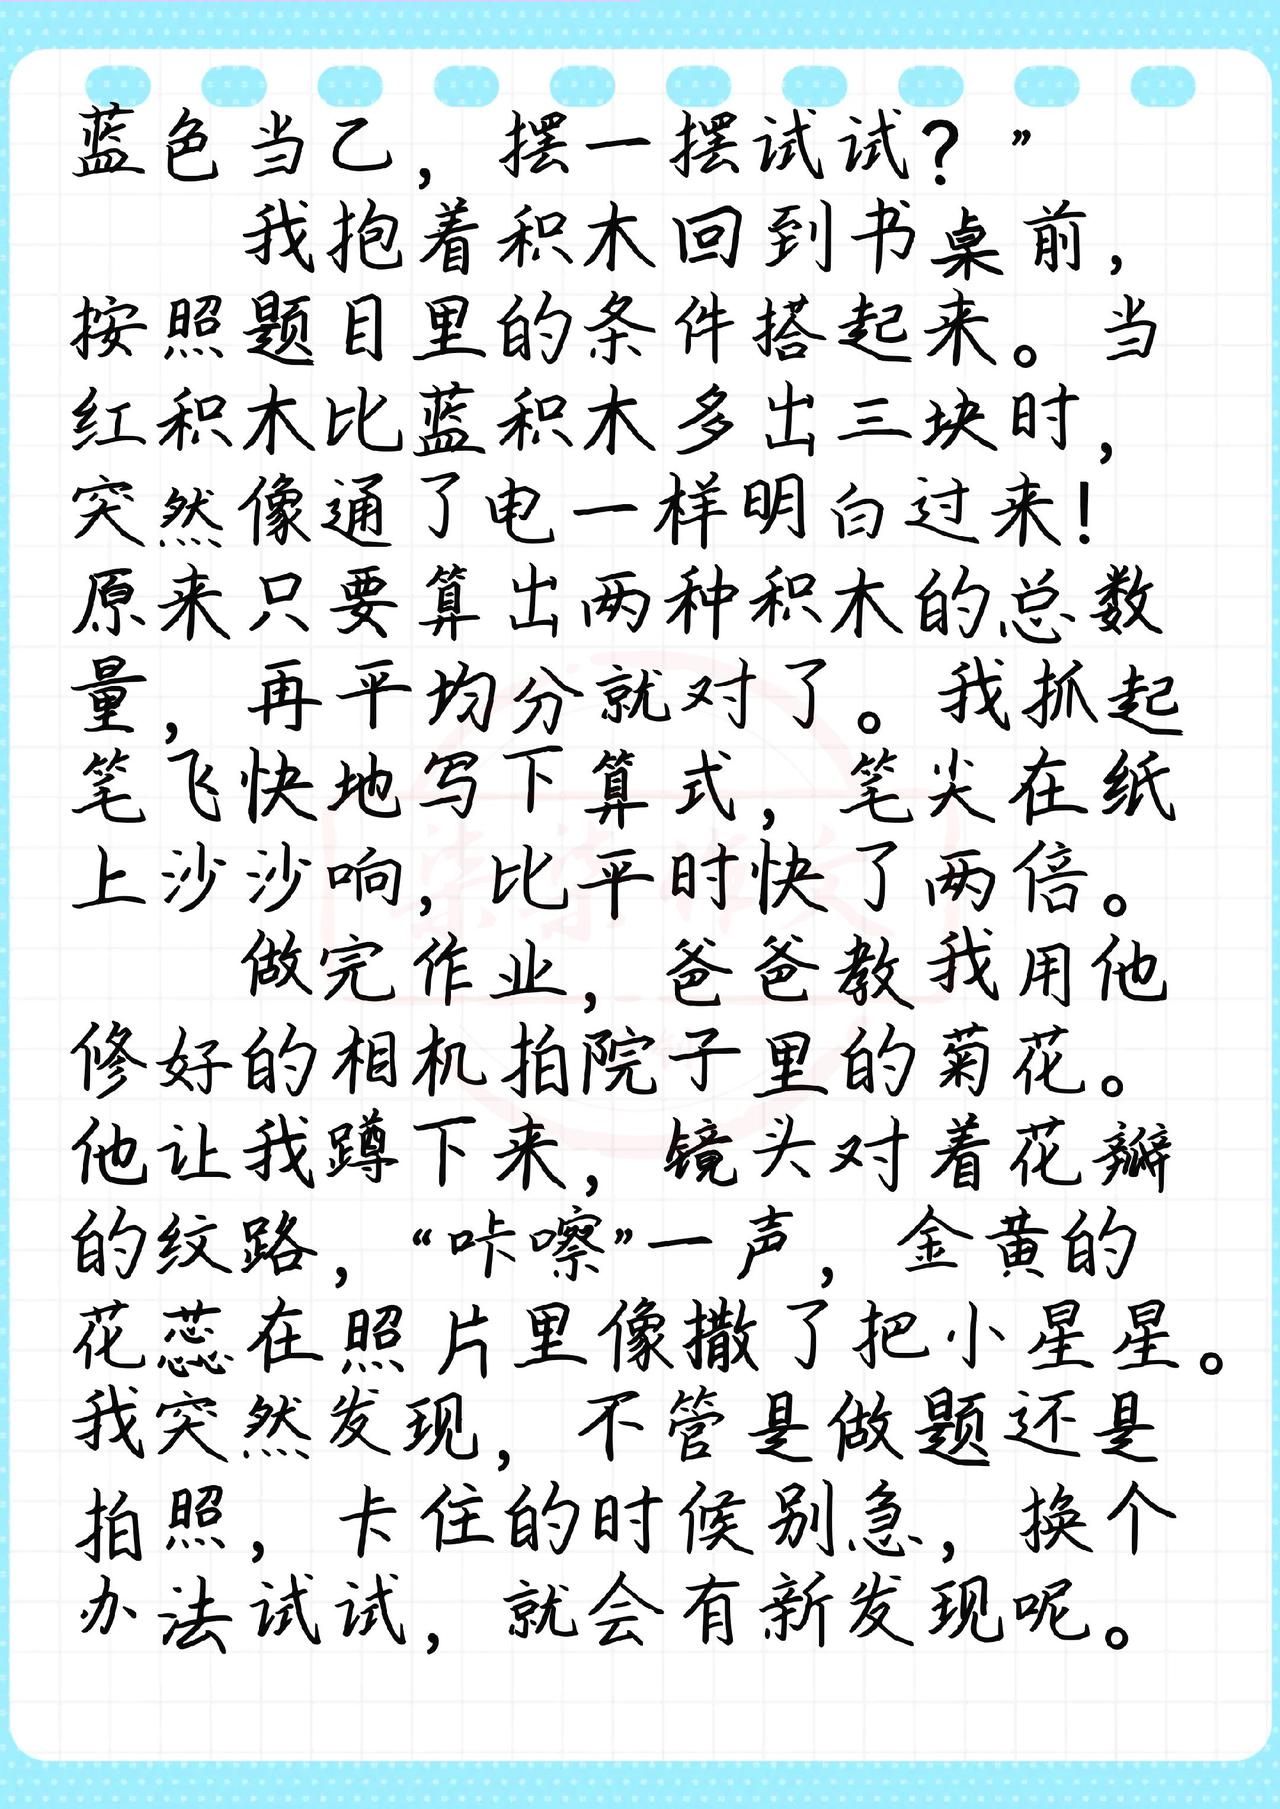 蓝色当乙，摆一摆试试？”
我抱着积木回到书桌前，
按照题目里的条件搭起来。当
红积木比蓝积木多出三块时，
突然像通了电一样明白过来！
原来只要算出两种积木的总数
量，再平均分就对了。我抓起
笔飞快地写下算式，笔尖在纸
上沙沙响，比平时快了两倍。
做完作业，爸爸教我用他
修好的相机拍院子里的菊花。
他让我蹲下来，镜头对着花瓣
的纹路，“咔嚓”一声，金黄的
花蕊在照片里像撒了把小星星。
我突然发现，不管是做题还是
拍照，卡住的时候别急，换个
办法试试，就会有新发现呢。